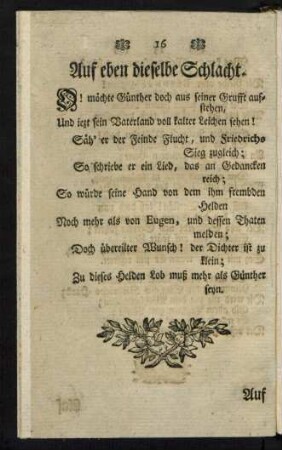 16
Auf eben dieselbe Schlacht.
O! möchte Günther doch aus seiner Grufft auf-
stehen,
Und iezt sein Vaterland voll kalter Leichen sehen!
Säh' er der Feinde Flucht, und Friedrichs
Sieg zugleich;
So schriebe er ein Lied, das an Gedancken
reich;
So würde seine Hand von dem ihm frembden
Helden
Noch mehr als von Eugen, und dessen Thaten
melden;
Doch übereilter Wunsch! der Dichter ist zu
klein;
Zu dieses Helden Lob muß mehr als Günther
seyn.
Auf